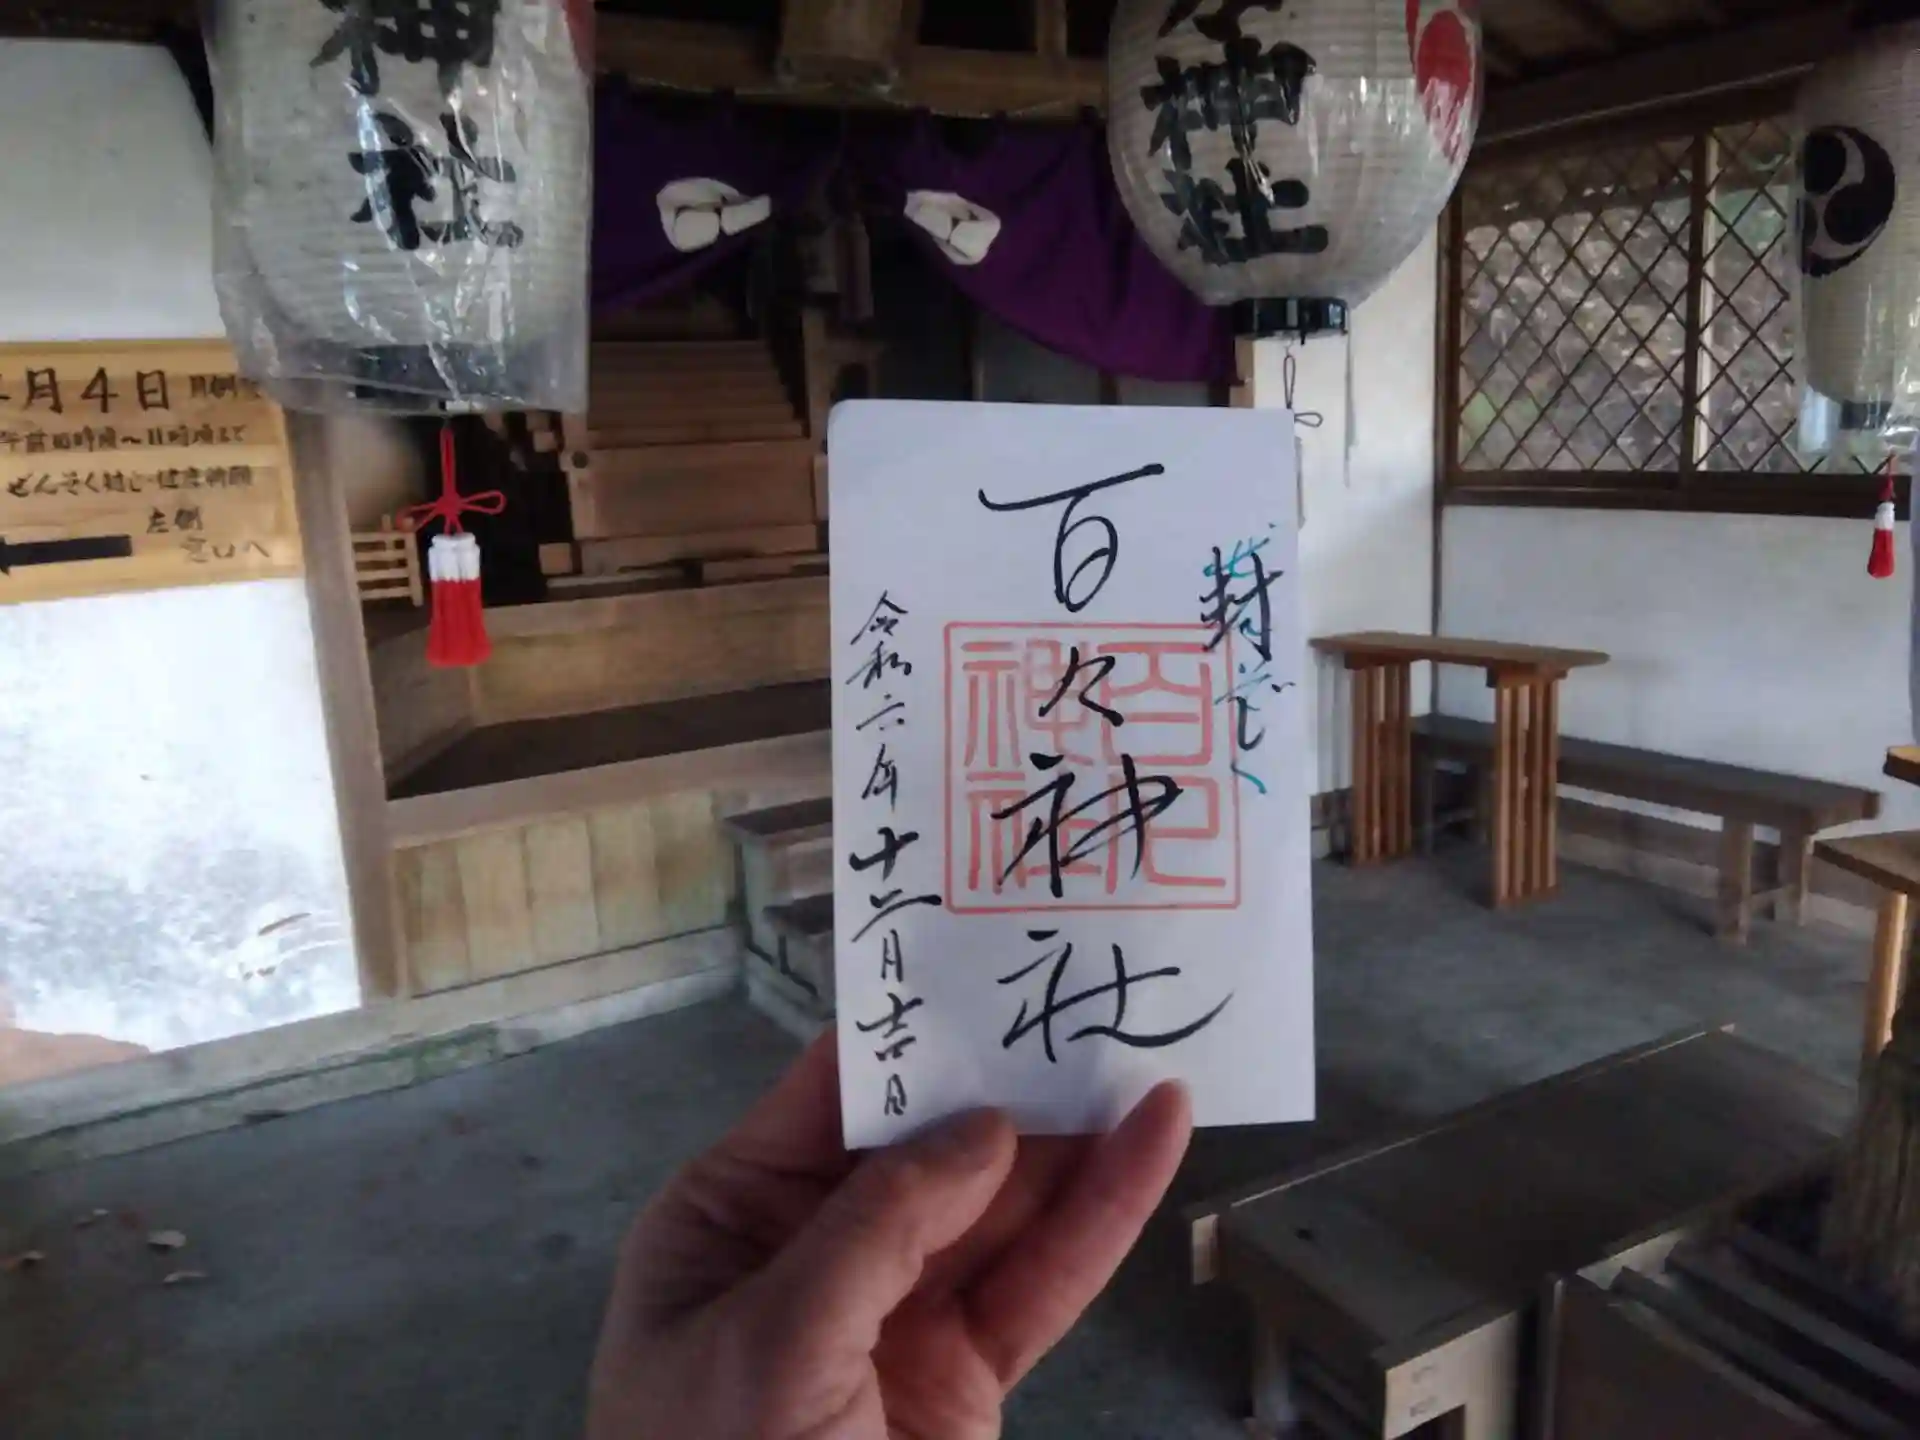 神社
々神社
月4日
午前10時頃～11時頃まで
ぜんそく封じ・健康祈願
左側
窓口へ
封じ
百々神社
令和六年十二月吉日